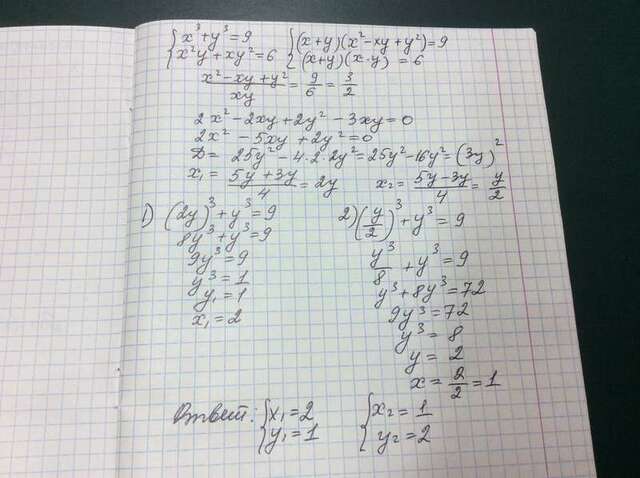 {x³+y³=9 {(x+y)(x²-xy+y²)=9
{x²y+xy²=6 {(x+y)(x·y) =6
(x²-xy+y²)/(xy) = 9/6 = 3/2
2x²-2xy+2y²-3xy=0
2x²-5xy+2y²=0
D= 25y²-4·2·2y²=25y²-16y²=(3y)²
x₁= (5y+3y)/4 = 2y x₂= (5y-3y)/4 = y/2
1) (2y)³+y³=9
8y³+y³=9
9y³=9
y³=1
y₁=1
x₁=2
2) (y/2)³+y³=9
y³/8+y³=9
y³+8y³=72
9y³=72
y³=8
y=2
x=2/2=1
Ответ: {x₁=2 {x₂=1
{y₁=1 {y₂=2